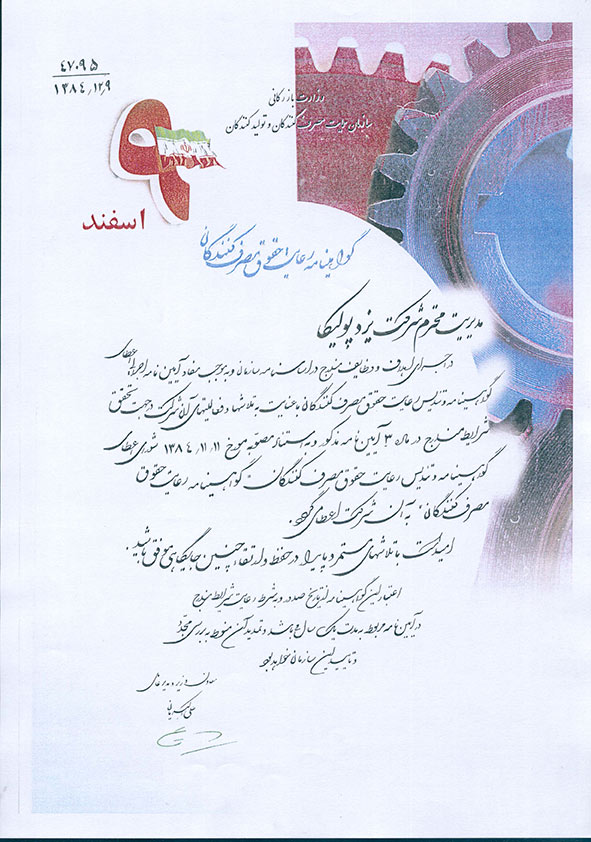 ۴۷۰۹۵
۱۳۸۴٫۱۲٫۹
وزارت بازرگانی
سازمان حمایت مصرف کنندگان و تولید کنندگان
۹
اسفند
گواهینامه رعایت حقوق مصرف کنندگان
مدیریت محترم شرکت یزد پولیکا
در اجرای اهداف و وظایف مندرج در اساسنامه سازمان و به موجب مفاد آیین نامه اجرایی اعطای
گواهینامه و تندیس رعایت حقوق مصرف کنندگان با عنایت به تلاشها و فعالیتهای آن شرکت در جهت تحقق
شرایط مندرج در ماده ۳ آیین نامه مذکور و به استناد مصوبه مورخ ۱۳۸۴٫۱۱٫۱۱ شورای اعطای
گواهینامه و تندیس رعایت حقوق مصرف کنندگان " گواهینامه رعایت حقوق
مصرف کنندگان " به آن شرکت اعطا می گردد .
امید است با تلاشهای مستمر و پایا در حفظ و ارتقاء چنین جایگاهی موفق باشید .
اعتبار این گواهینامه از تاریخ صدور و به شرط رعایت شرایط مندرج
در آیین نامه مربوط به مدت یک سال می باشد و تمدید آن منوط به بررسی مجدد
و تایید این سازمان خواهد بود
معاون وزیر و مدیر عامل